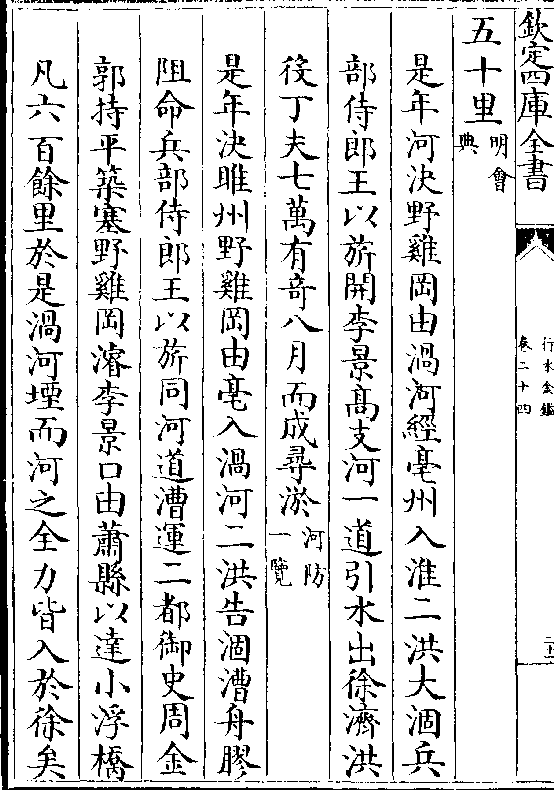 欽定四庫全書
行水金鑑
卷二十四
五十里明會典
是年河決野雞岡由渦河經亳州入淮二洪大涸兵
部侍郎王以旂開李景高支河一道引水出徐濟洪
役丁夫七萬有奇八月而成尋淤河防一覽
是年決睢州野雞岡由亳入渦河二洪告涸漕舟膠
阻命兵部侍郎王以旂同河道漕運二都御史周金
郭持平築塞野雞岡濬李景口由蕭縣以達小浮橋
凡六百餘里於是渦河堙而河之全力皆入於徐矣